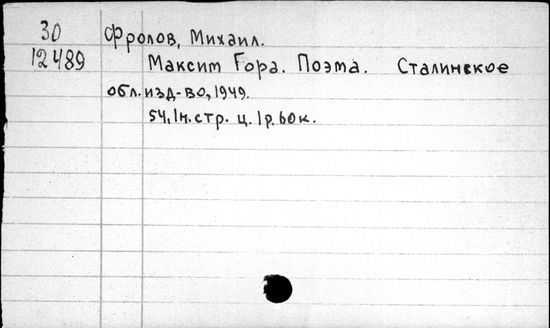 30 Фролов, Михаил.
12489 Максим Гора. Поэма. Сталинское
обл. изд-во, 1949.
54, 1 н. стр. ц. 1 р. 60 к.